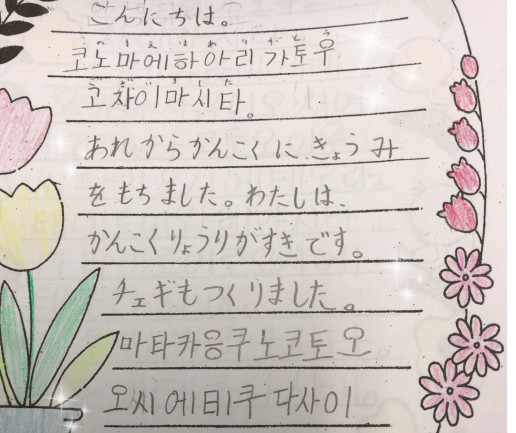 こんにちは。
このまえはありがとう
코노마에하아리가토우
ございました
고자이마시타。
あれからかんこくに きょうみ
をもちました。わたしは、
かんこくりょうりがすきです。
チェギもつくりました。
마타카응쿠노코토오
오씨에테쿠다사이